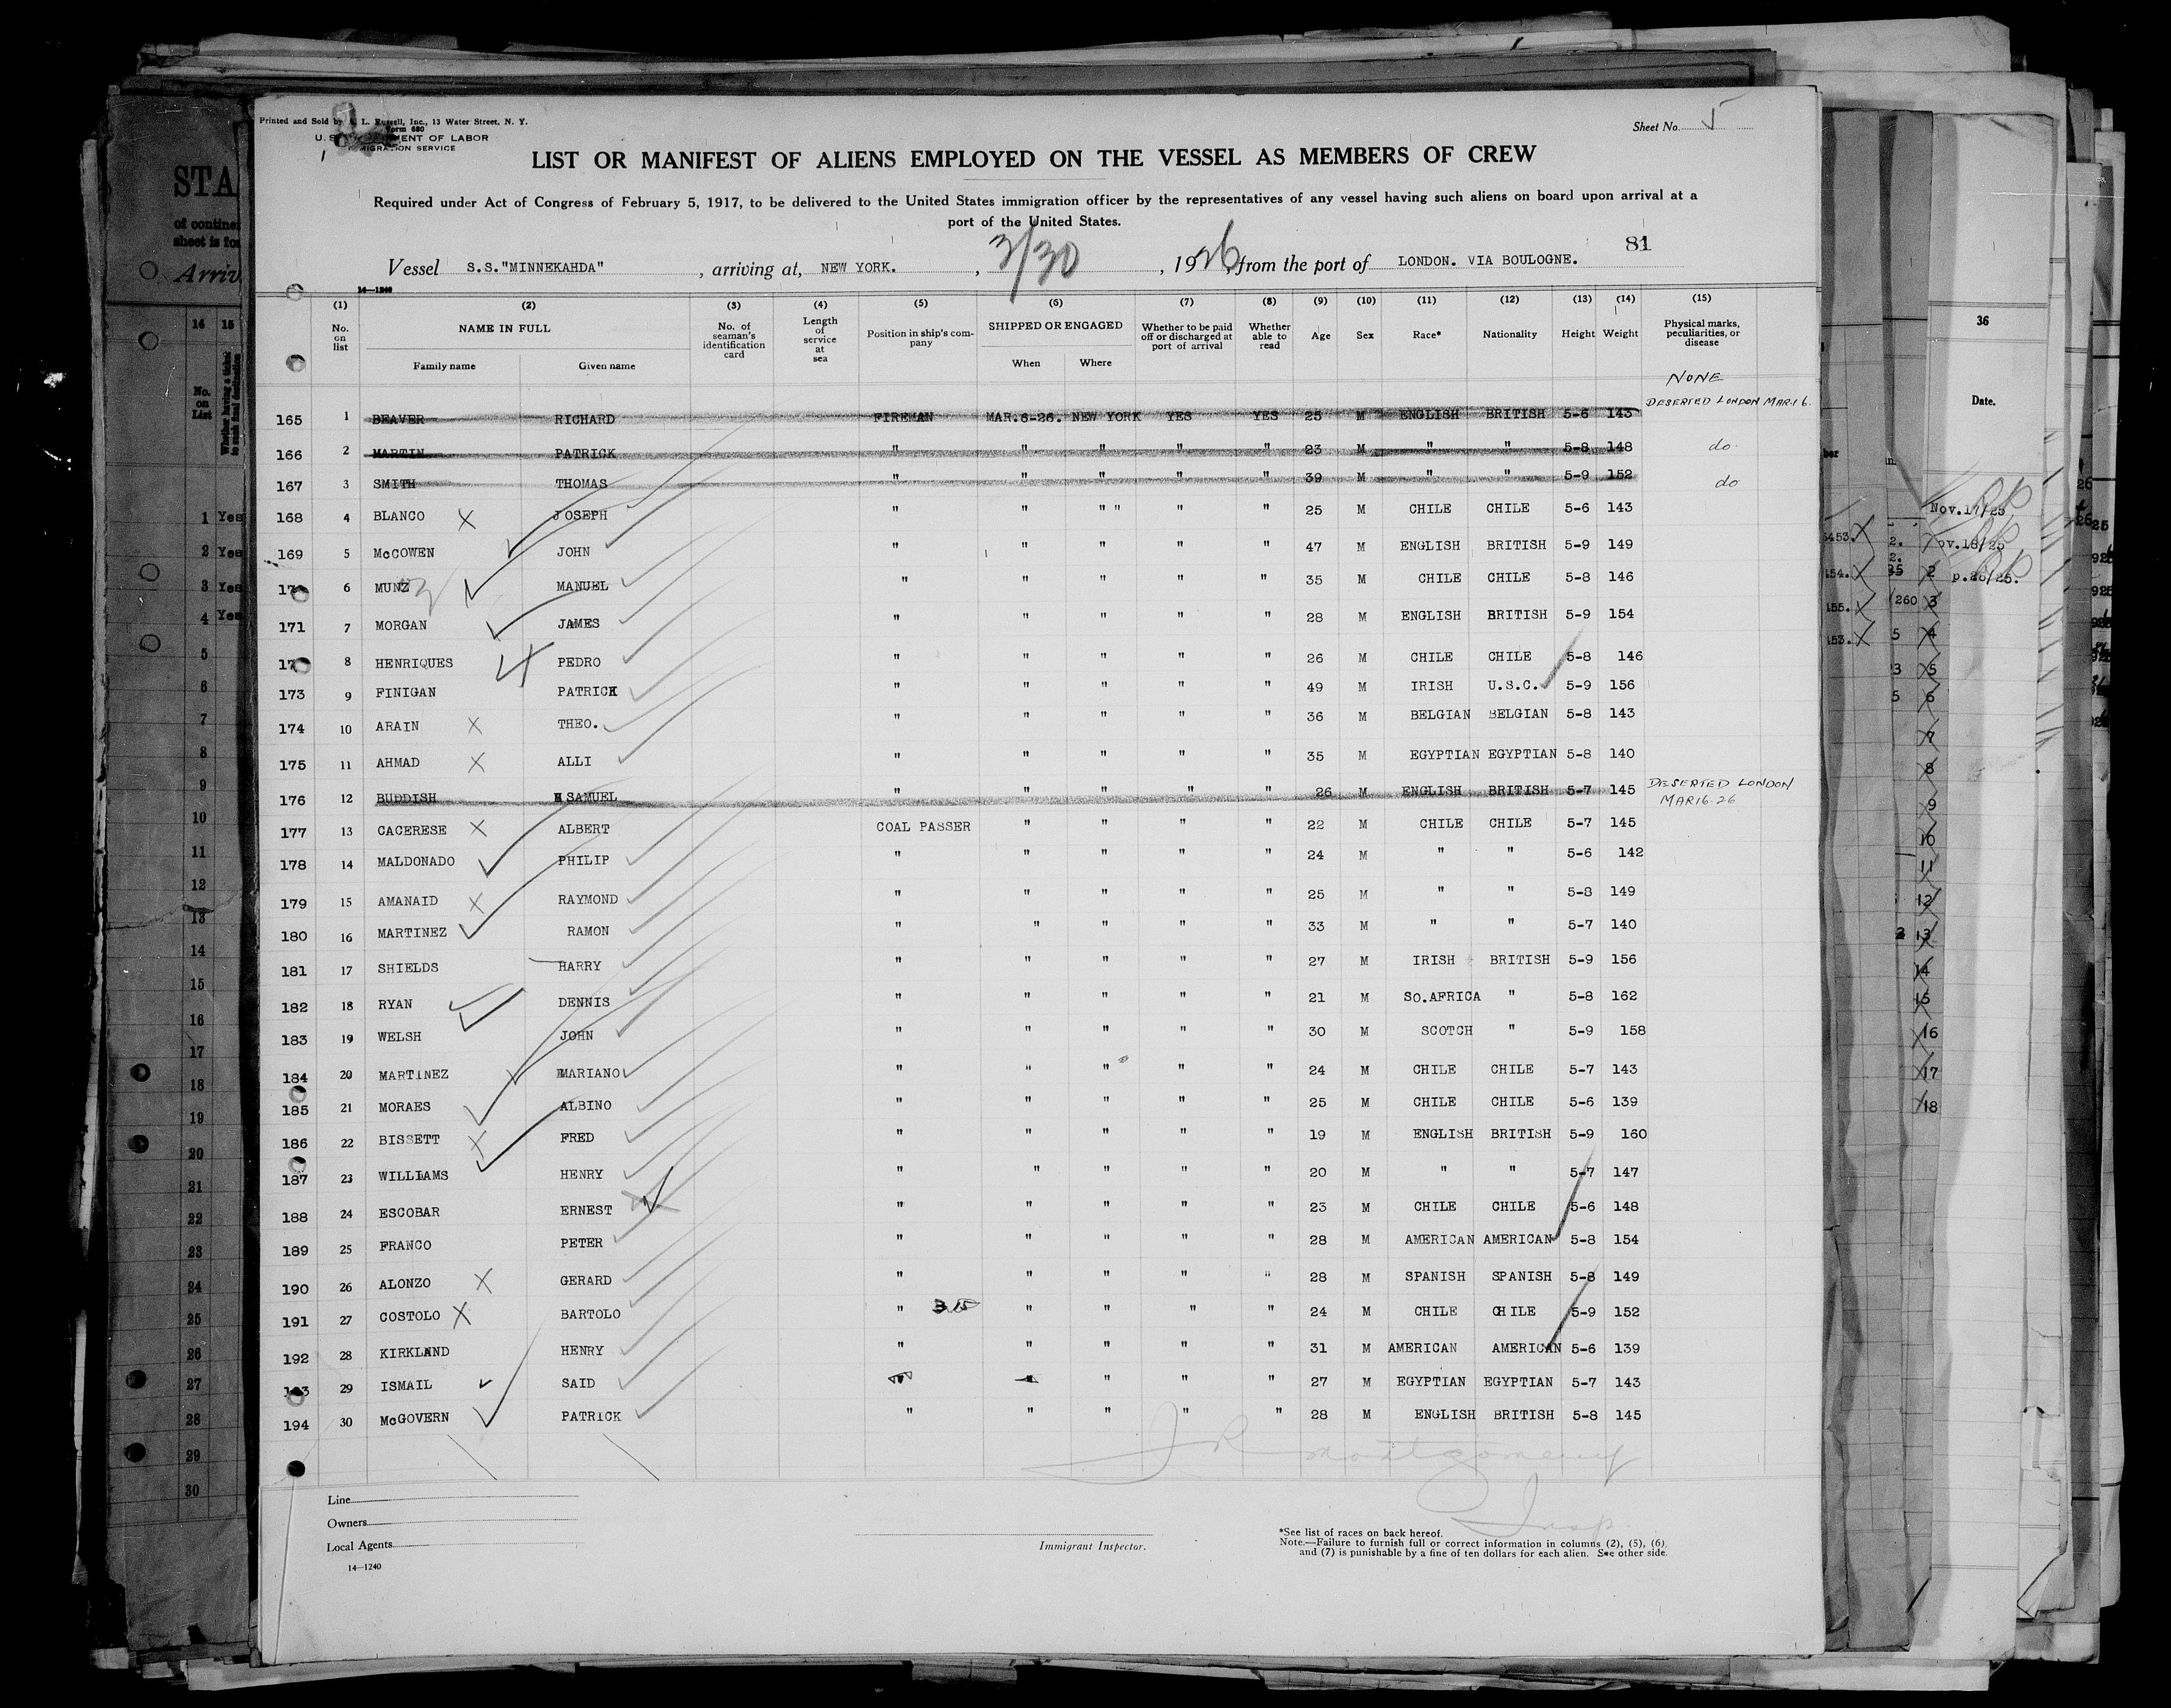 Printed and Sold by L. Russell, Inc., 13 Water Street, N. Y.
Form 680
LABOR
SERVICE
Sheet No. 5
LIST OR MANIFEST OF ALIENS EMPLOYED ON THE VESSEL AS MEMBERS OF CREW
Required under Act of Congress of February 5, 1917, to be delivered to the United States immigration officer by the representatives of any vessel having such aliens on board upon arrival at a
port of the United States.
81
Vessel S.S."MINNEKAHDA" , arriving at, NEW YORK. , 3/30 , 1926, from the port of LONDON. VIA BOULOGNE.
14—1240
(1) (2) (3) (4) (5) (6) (7) (8) (9) (10) (11) (12) (13) (14) (15)
No. on list NAME IN FULL Family name Given name No. of seaman's identification card Length of service at sea Position in ship's company SHIPPED OR ENGAGED When Where Whether to be paid off or discharged at port of arrival Whether able to read Age Sex Race* Nationality Height Weight Physical marks, peculiarities, or disease
NONE
165 1 BEAVER RICHARD FIREMAN MAR.6-26. NEW YORK YES YES 25 M ENGLISH BRITISH 5-6 143 DESERTED LONDON MAR.16.
166 2 MARTIN PATRICK " " " " " 23 M " " 5-8 148 do.
167 3 SMITH THOMAS " " " " " 39 M " " 5-9 152 do
168 4 BLANCO X JOSEPH " " " " " " 25 M CHILE CHILE 5-6 143
169 5 McCOWEN JOHN " " " " " 47 M ENGLISH BRITISH 5-9 149
6 MUNZ MANUEL " " " " " 35 M CHILE CHILE 5-8 146
171 7 MORGAN JAMES " " " " " 28 M ENGLISH BRITISH 5-9 154
8 HENRIQUES PEDRO " " " " " 26 M CHILE CHILE 5-8 146
173 9 FINIGAN PATRICK " " " " " 49 M IRISH U.S.C. 5-9 156
174 10 ARAIN X THEO. " " " " " 36 M BELGIAN BELGIAN 5-8 143
175 11 AHMAD X ALLI " " " " " 35 M EGYPTIAN EGYPTIAN 5-8 140
176 12 BUDDISH SAMUEL " " " " " 26 M ENGLISH BRITISH 5-7 145 DESERTED LONDON MAR16-26
177 13 CACERESE X ALBERT COAL PASSER " " " " 22 M CHILE CHILE 5-7 145
178 14 MALDONADO PHILIP " " " " " 24 M " " 5-6 142
179 15 AMANAID X RAYMOND " " " " " 25 M " " 5-8 149
180 16 MARTINEZ RAMON " " " " " 33 M " " 5-7 140
181 17 SHIELDS HARRY " " " " " 27 M IRISH BRITISH 5-9 156
182 18 RYAN DENNIS " " " " " 21 M SO.AFRICA " 5-8 162
183 19 WELSH JOHN " " " " " 30 M SCOTCH " 5-9 158
184 20 MARTINEZ MARIANO " " " " " 24 M CHILE CHILE 5-7 143
185 21 MORAES ALBINO " " " " " 25 M CHILE CHILE 5-6 139
186 22 BISSETT X FRED " " " " " 19 M ENGLISH BRITISH 5-9 160
187 23 WILLIAMS HENRY " " " " " 20 M " " 5-7 147
188 24 ESCOBAR ERNEST " " " " " 23 M CHILE CHILE 5-6 148
189 25 FRANCO PETER " " " " " 28 M AMERICAN AMERICAN 5-8 154
190 26 ALONZO X GERARD " " " " " 28 M SPANISH SPANISH 5-8 149
191 27 COSTOLO X BARTOLO " 315 " " " " 24 M CHILE CHILE 5-9 152
192 28 KIRKLAND HENRY " " " " " 31 M AMERICAN AMERICAN 5-6 139
29 ISMAIL SAID " " " 27 M EGYPTIAN EGYPTIAN 5-7 143
194 30 McGOVERN PATRICK " " " " " 28 M ENGLISH BRITISH 5-8 145
J R Montgomery
Insp.
Line
Owners
Local Agents
14—1240
Immigrant Inspector.
*See list of races on back hereof.
Note.—Failure to furnish full or correct information in columns (2), (5), (6),
and (7) is punishable by a fine of ten dollars for each alien. See other side.
STA
of contine
sheet is for
Arriv
14 15
No. on List
1 Yes
2 Yes
3 Yes
4 Yes
5
6
7
8
9
10
11
12
13
14
15
16
17
18
19
20
21
22
23
24
25
26
27
28
29
30
36
Date.
Nov.17/25
ov.18/25
p.26/25.
2
260 3
4
5
6
7
8
9
10
11
12
13
14
15
16
17
18